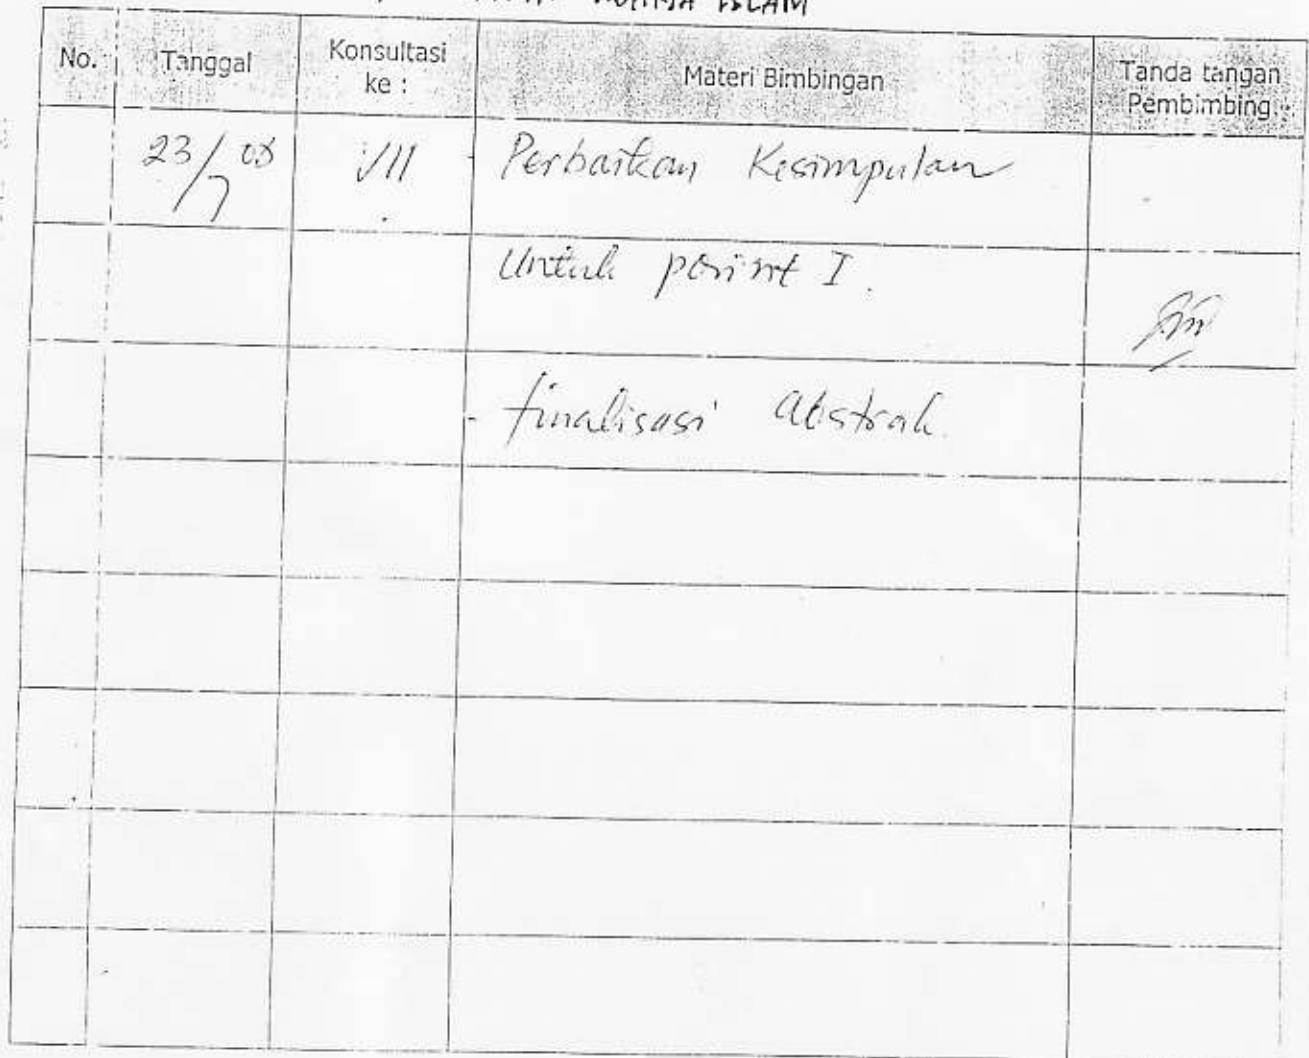 AGAMA ISLAM
No. Tanggal Konsultasi ke : Materi Bimbingan Tanda tangan Pembimbing
23/7 08 VII - Perbaikan Kesimpulan
Untuk point I.
- finalisasi Abstrak